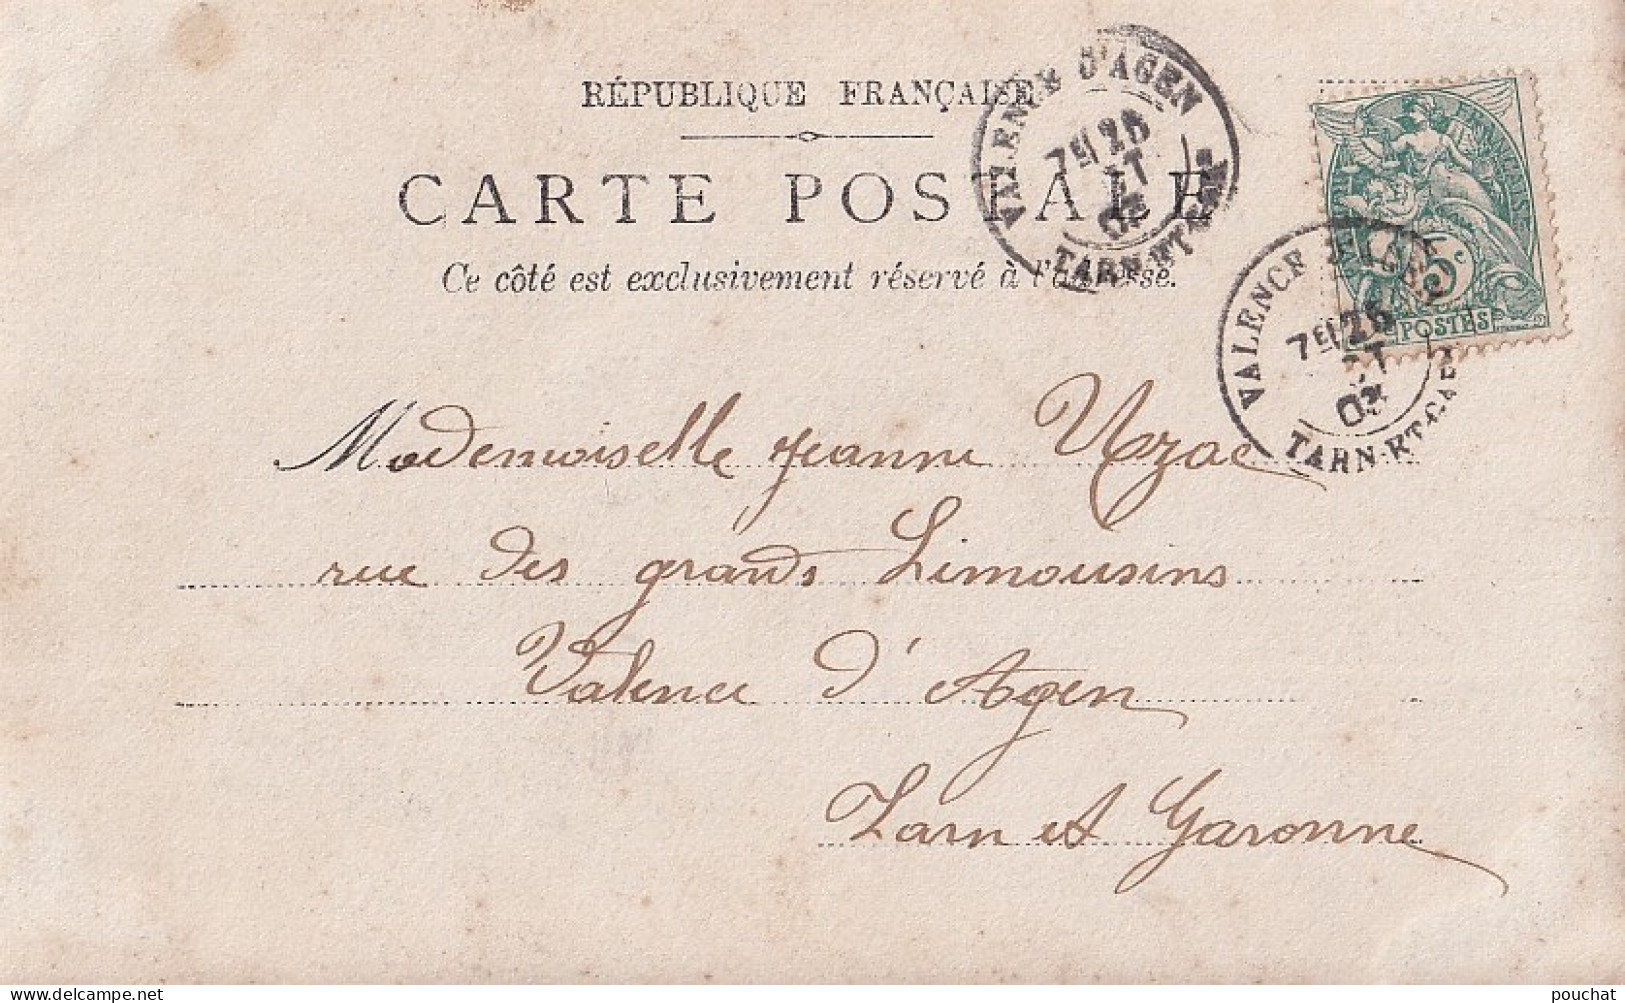 RÉPUBLIQUE FRANÇAISE
CARTE POSTALE
Ce côté est exclusivement réservé à l'adresse.
VALENCE D'AGEN
7E 26
OCT
03
TARN-ET-GAR.
5c
POSTES
VALENCE D'AGEN
7E 26
OCT
03
TARN-ET-GAR.
Mademoiselle Jeanne Uzac
rue des grands Limousins
Valence d'Agen
Tarn et Garonne
pouchat